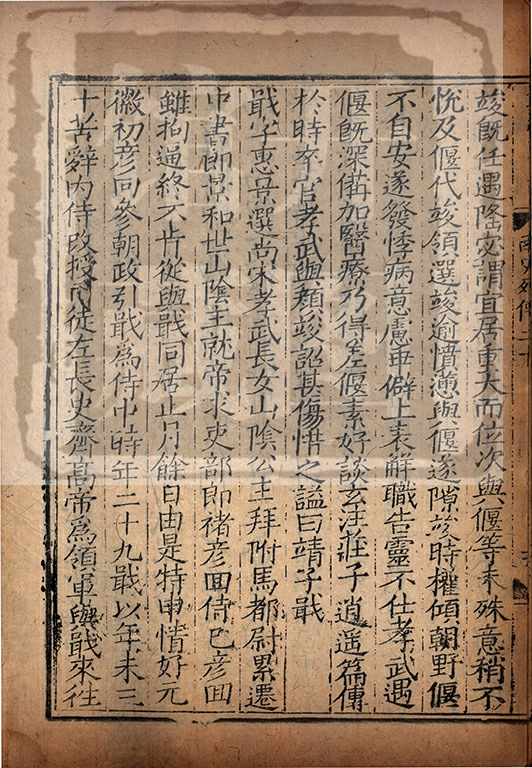 竣旣任遇隆宻謂宜居重大而位次與偃等未殊意稍不
恱及偃代竣領選竣逾憤懣與偃遂隙竣時權傾朝野偃
不自安遂發悸病意慮乖僻上表解職告靈不仕孝武遇
偃旣深備加醫療乃得差偃素好談玄注莊子逍遥篇傳
於時卒官孝武與顔竣詔甚傷惜之謚曰靖子戢
戢字惠景選尚宋孝武長女山陰公主拜附馬都尉累遷
中書郎景和世山陰主就帝求吏部郎禇彦囬侍巳彦囬
雖拘逼終不肯從與戢同居止月餘日由是特申情好元
徽初彦囘參朝政引戢爲侍中時年二十九戢以年未三
十苦辭内侍改授司徒左長史齊髙帝爲領軍與戢來往
南史列傳二